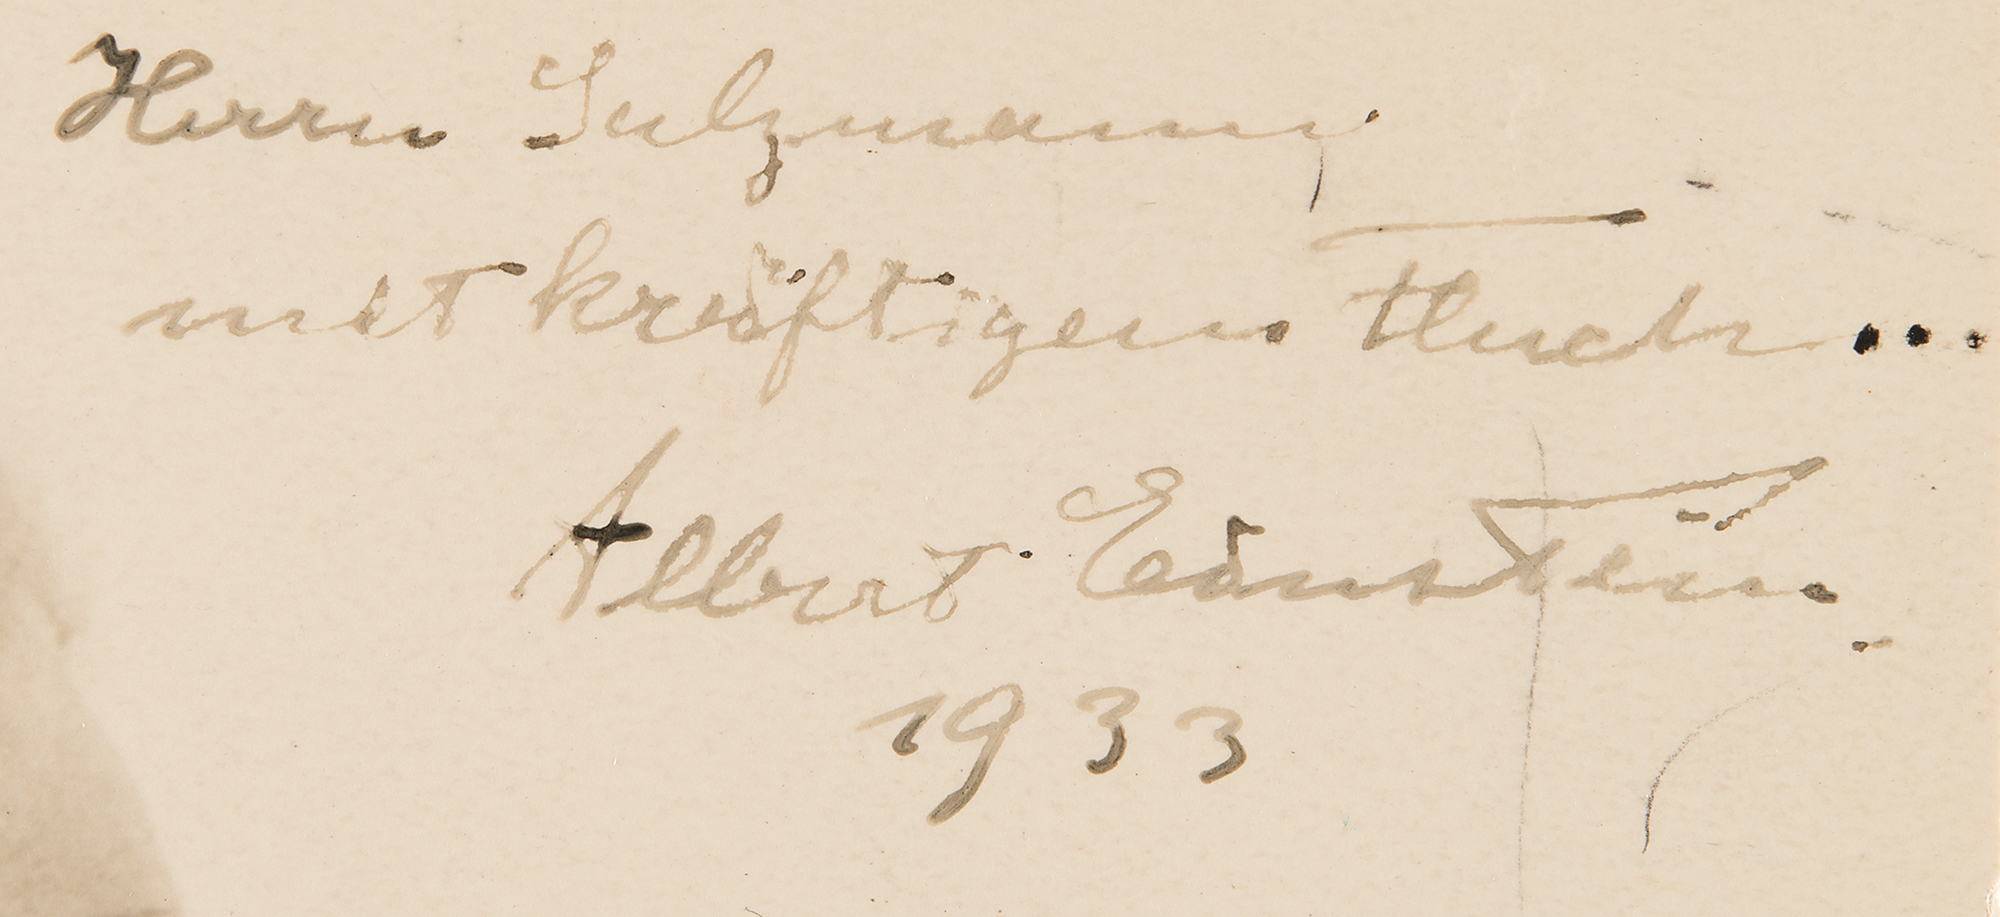 Herrn Sulzmann,
mit kräftigem Fluch...
Albert Einstein.
1933